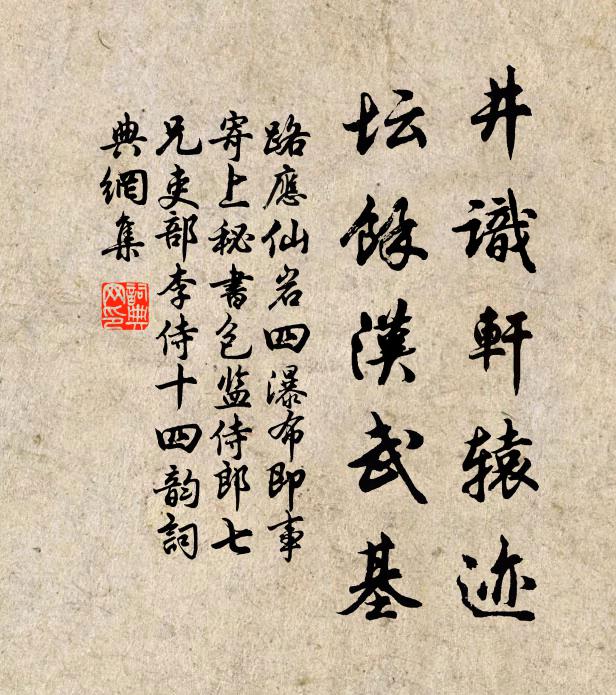 井識軒辕迹
坛餘漢武基
路應仙岩四瀑布即事
寄上秘書包监侍郎七
兄吏部李侍十四韵詞
典網集
詞典
网印